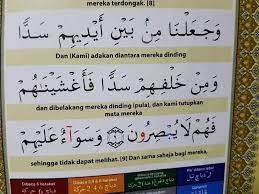 mereka terdongak. [8]
وَجَعَلْنَا مِنْ بَيْنِ أَيْدِيهِمْ سَدًّا
Dan (Kami) adakan diantara mereka dinding
وَمِنْ خَلْفِهِمْ سَدًّا فَأَغْشَيْنَٰهُمْ
dan dibelakang mereka dinding (pula), dan kami tutupkan
mata mereka
فَهُمْ لَا يُبْصِرُونَ ۝٩ وَسَوَآءٌ عَلَيْهِمْ
sehingga tidak dapat melihat. [9] Dan sama sahaja bagi mereka,